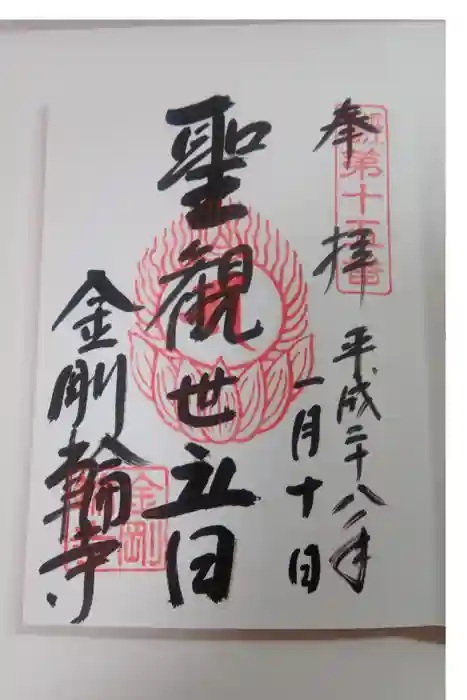 奉拝
第十五番
平成二十八年
一月十日
聖観世音
金剛輪寺
金剛